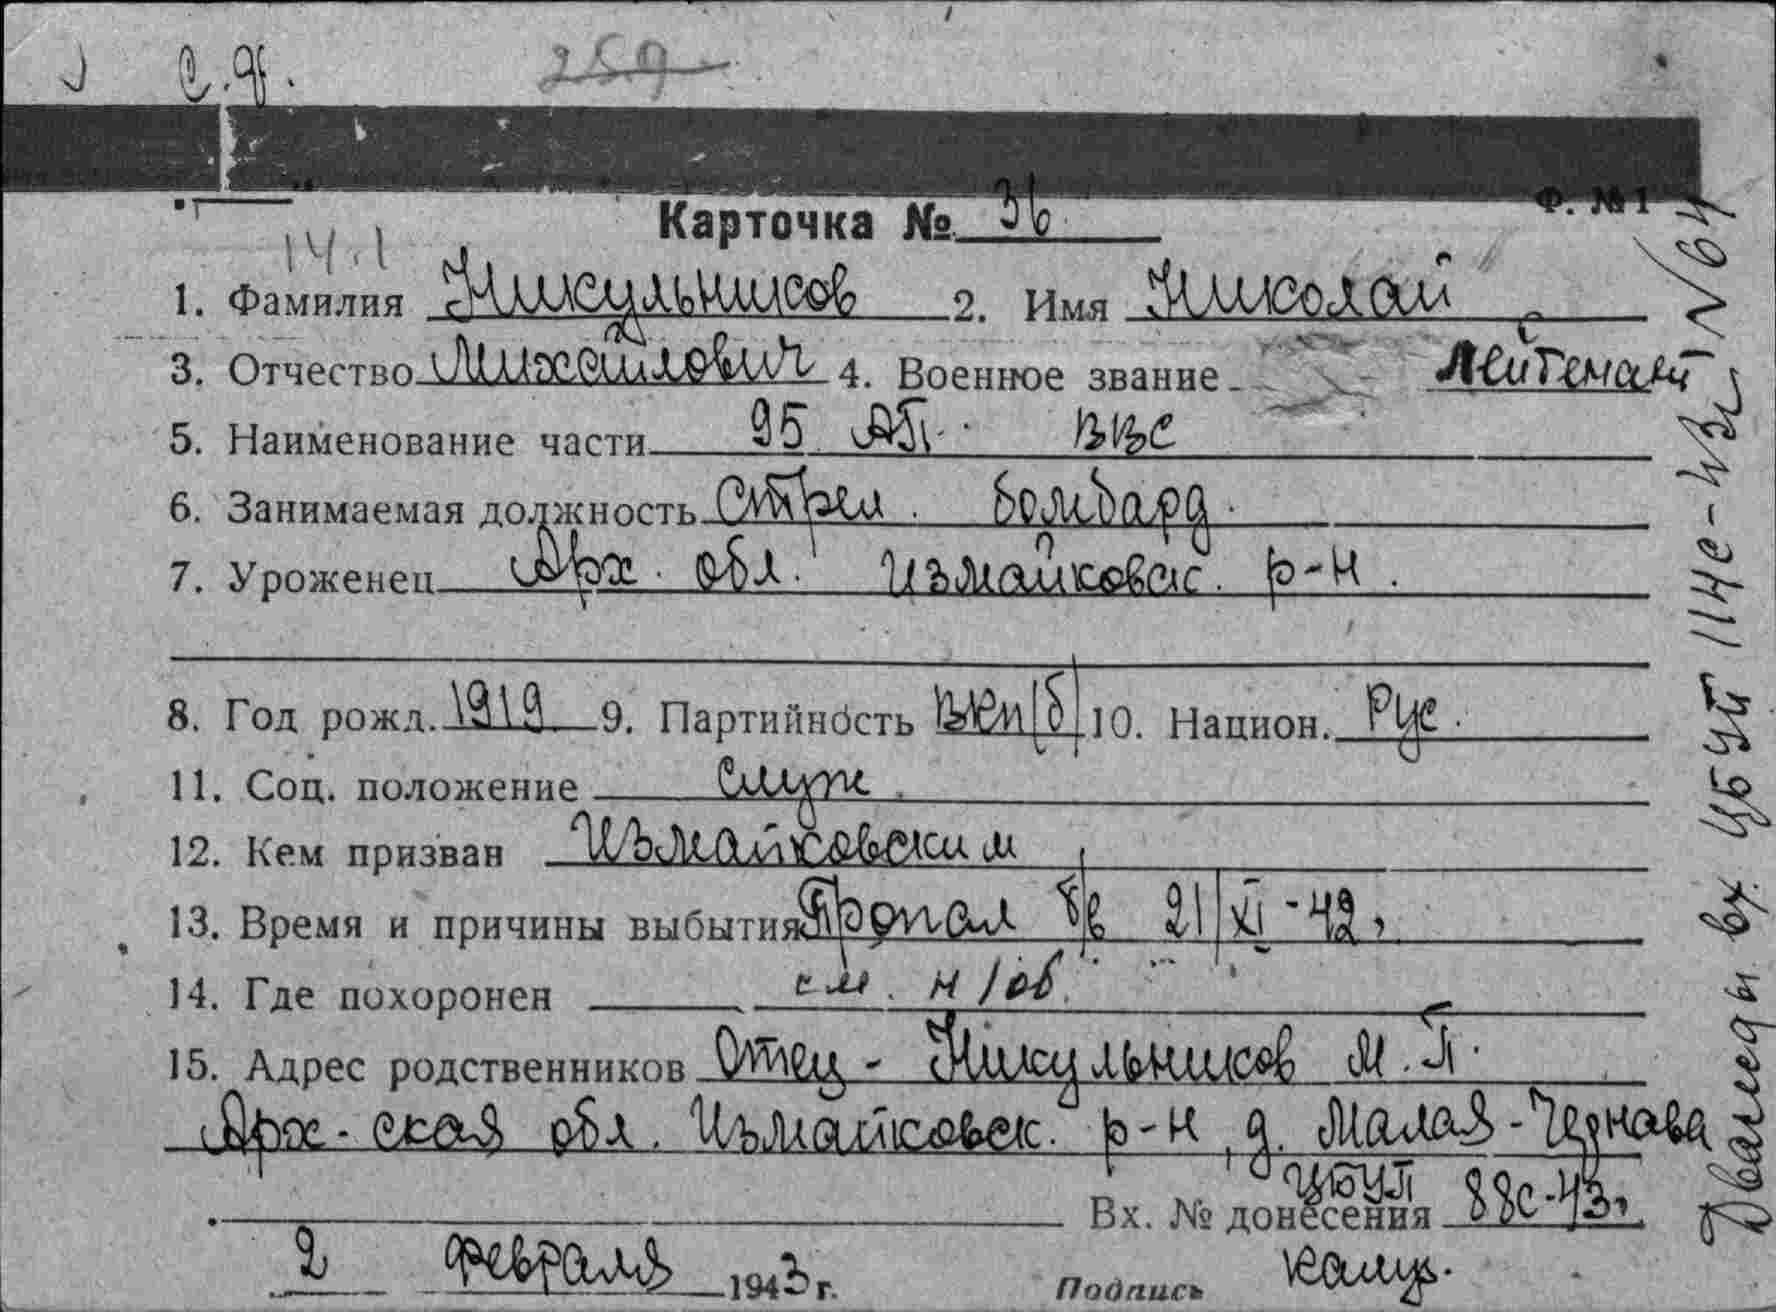 с.ф.
259
Ф. № 1
Карточка № 36
14.1
1. Фамилия Никульников 2. Имя Николай
3. Отчество Михайлович 4. Военное звание Лейтенант
5. Наименование части 95 АП. ВВС
6. Занимаемая должность Стрел. бомбард.
7. Уроженец Арх. обл. Измайковск. р-н.
8. Год рожд. 1919 9. Партийность ВКП/б/ 10. Национ. Рус.
11. Соц. положение служ.
12. Кем призван Измайковским
13. Время и причины выбытия Пропал б/в 21/XI-42,
14. Где похоронен см. н/об.
15. Адрес родственников Отец - Никульников М.П.
Арх-ская обл. Измайковск. р-н, д. Малая-Чернава
Вх. № донесения ЦБУП 88с-43г
2 февраля 1943 г. Подпись
Дважды вх. ЦБУП 114с-43г N64